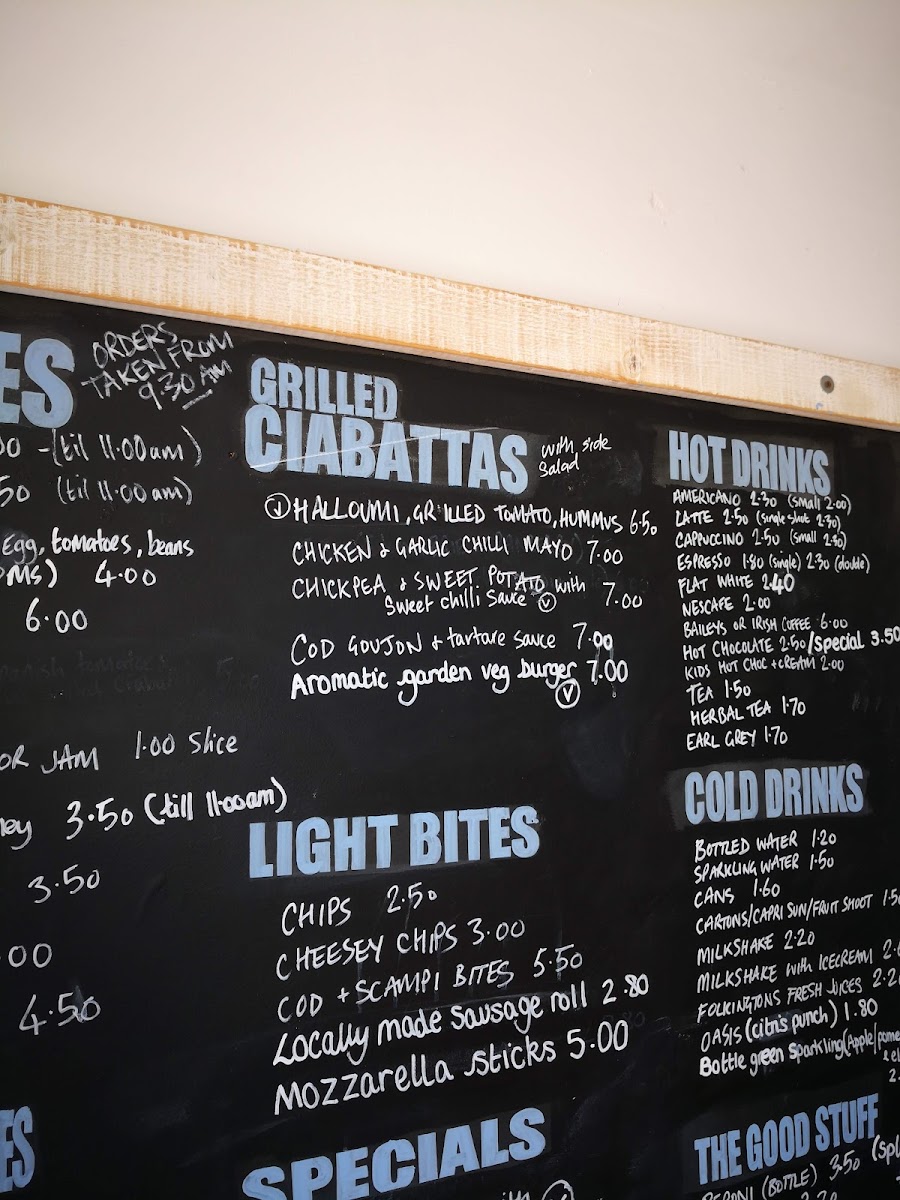 ES
ORDERS
TAKEN FROM
9.30 AM
00 - (til 11.00am)
50 (til 11.00am)
Egg, tomatoes, beans
4.00
6.00
OR JAM 1.00 Slice
3.50 (till 11.00am)
3.50
.00
4.50
ES
GRILLED
CIABATTAS
with side
Salad
V HALLOUMI, GRILLED TOMATO, HUMMUS 6.50
CHICKEN & GARLIC CHILLI MAYO 7.00
CHICKPEA & SWEET POTATO with
Sweet chilli Sauce V 7.00
COD GOUJON + tartare sauce 7.00
Aromatic garden veg burger 7.00
V
LIGHT BITES
CHIPS 2.50
CHEESEY CHIPS 3.00
COD + SCAMPI BITES 5.50
Locally made sausage roll 2.80
Mozzarella sticks 5.00
SPECIALS
with V
HOT DRINKS
AMERICANO 2.30 (small 2.00)
LATTE 2.50 (single shot 2.30)
CAPPUCCINO 2.50 (small 2.30)
ESPRESSO 1.80 (single) 2.30 (double)
FLAT WHITE 2.40
NESCAFE 2.00
BAILEYS OR IRISH COFFEE 6.00
HOT CHOCOLATE 2.50/special 3.50
KIDS HOT CHOC + CREAM 2.00
TEA 1.50
HERBAL TEA 1.70
EARL GREY 1.70
COLD DRINKS
BOTTLED WATER 1.20
SPARKLING WATER 1.50
CANS 1.60
CARTONS/CAPRI SUN/FRUIT SHOOT 1.5
MILKSHAKE 2.20
MILKSHAKE with ICECREAM 2.
FOLKINGTONS FRESH JUICES 2.2
OASIS (citrus punch) 1.80
Bottle green sparkling (Apple/pome
2.
THE GOOD STUFF
PERONI (BOTTLE) 3.50 (spl